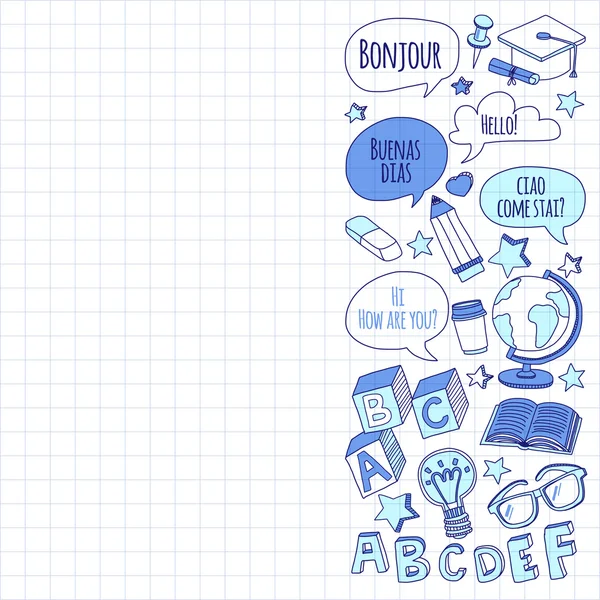 Bonjour
Hello!
Buenas
dias
ciao
come stai?
Hi
How are you?
B
C
A
A B C D E F